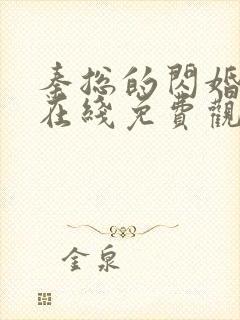 秦总的閃婚
在綫免費觀
金泉